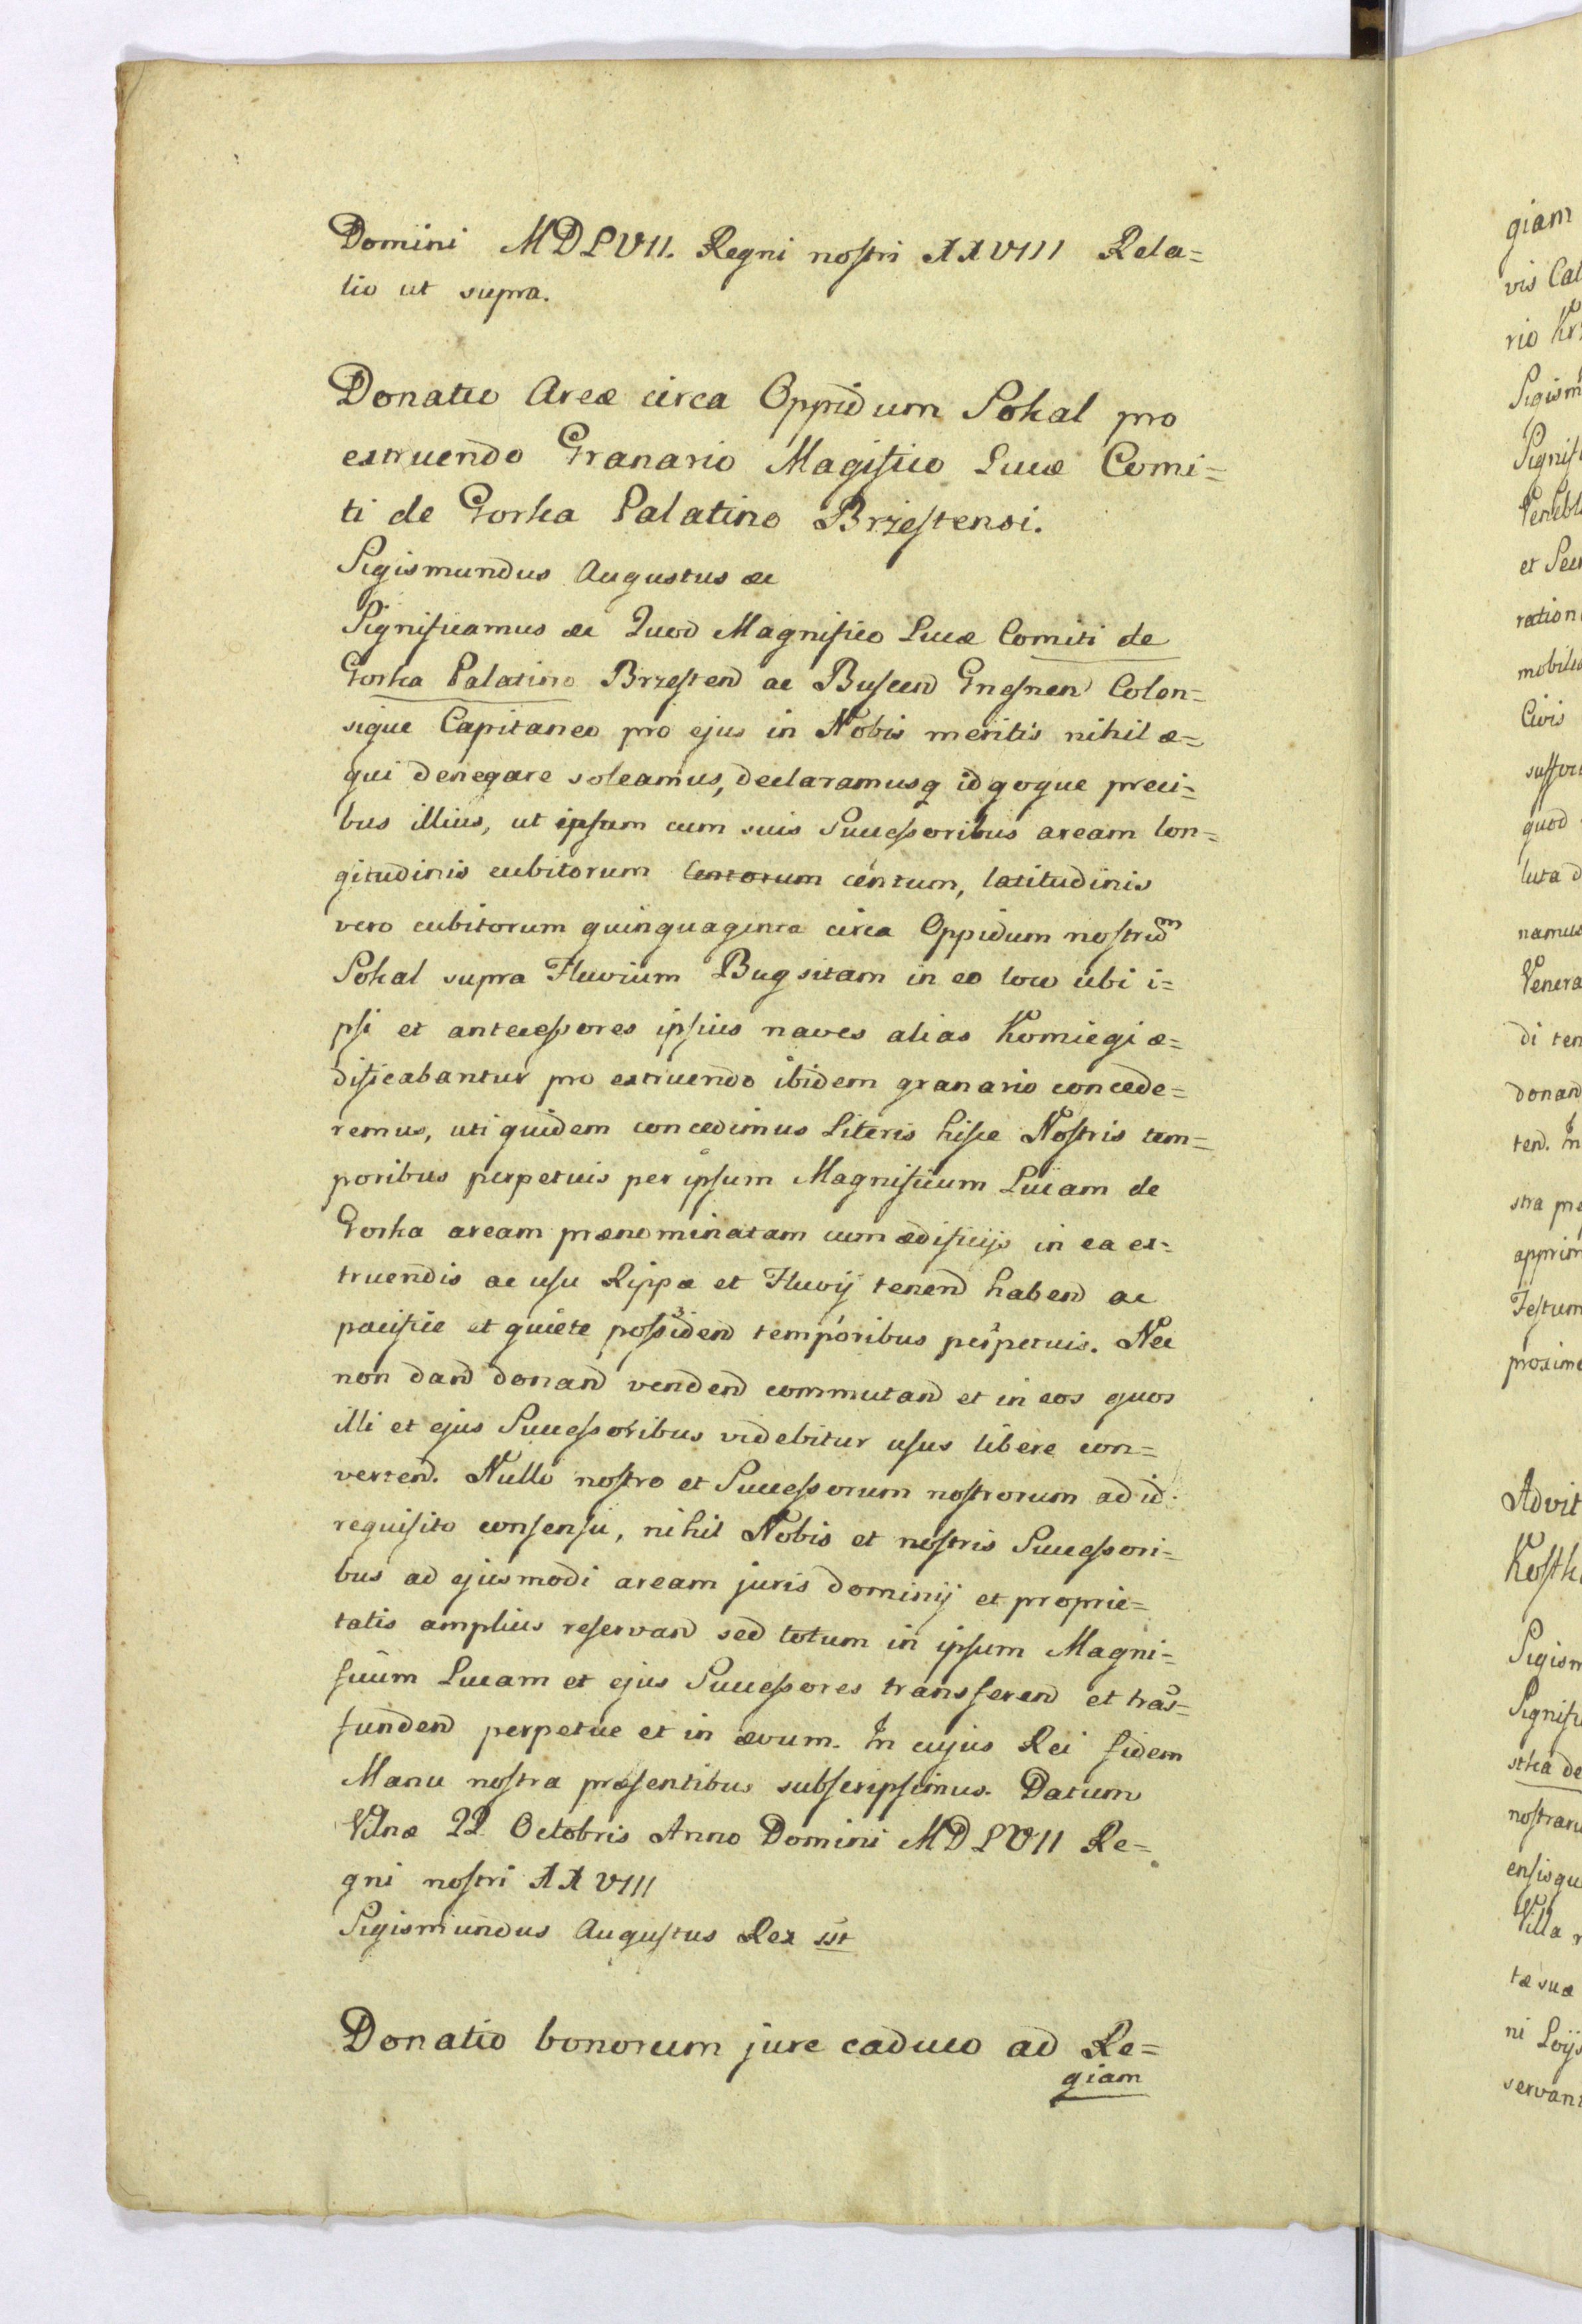 Domini MDLVII. Regni nostri XXVIII Rela=
tio ut supra.
Donatio Areæ circa Oppidum Sokal pro
extruendo Granario Magifico Lucæ Comi=
ti de Gorka Palatino Brzestensi.
Sigismundus Augustus &c
Significamus &c Quod Magnifico Lucæ Comiti de
Gorka Palatino Brzesten ac Buscen Gnesnen Colen=
sique Capitaneo pro ejus in Nobis meritis nihil æ=
qui denegare soleamus, declaramusq id qoque preci=
bus illius, ut ipsum cum suis Successoribus aream lon=
gitudinis cubitorum Centorum centum, latitudinis
vero cubitorum quinquaginta circa Oppidum nostrum
Sokal supra Fluvium Bug sitam in eo loco ubi i=
psi et antecessores ipsius naves alias Komiegi æ=
dificabantur pro extruendo ibidem granario concede=
remus, uti quidem concedimus Literis hisce Nostris tem=
poribus perpetuis per ipsum Magnificum Lucam de
Gorka aream prænominatam cum ædificijs in ea ex=
truendis ac usu Rippæ et Fluvij tenend habend ac
pacifice et quiete possidend temporibus perpetuis. Nec
non dand donand vendend commutand et in eos quos
illi et ejus Successoribus videbitur usus libere con=
vertend. Nullo nostro et Successorum nostrorum ad id
requisito consensu, nihil Nobis et nostris Successori=
bus ad ejusmodi aream juris dominij et proprie=
tatis amplius reservand sed totum in ipsum Magni=
ficum Lucam et ejus Successores transferend et tras=
fundend perpetue et in ævum. In cujus Rei fidem
Manu nostra præsentibus subscripsimus. Datum
Vilnæ 22 Octobris Anno Domini MDLVII Re=
gni nostri XXVIII
Sigismundus Augustus Rex sst
Donatio bonorum jure caduco ad Re=
giam
giam
vis
rio
Sigism
Signifi
et
ration
mobili
Civis
quod
luta d
namus
Venera
di ten
donand
tend. In
stra
Festum
proxime
Advit
Sigism
Signifi
stka de
nostram
ensisqu
Villa
tæ suæ
ni
servan